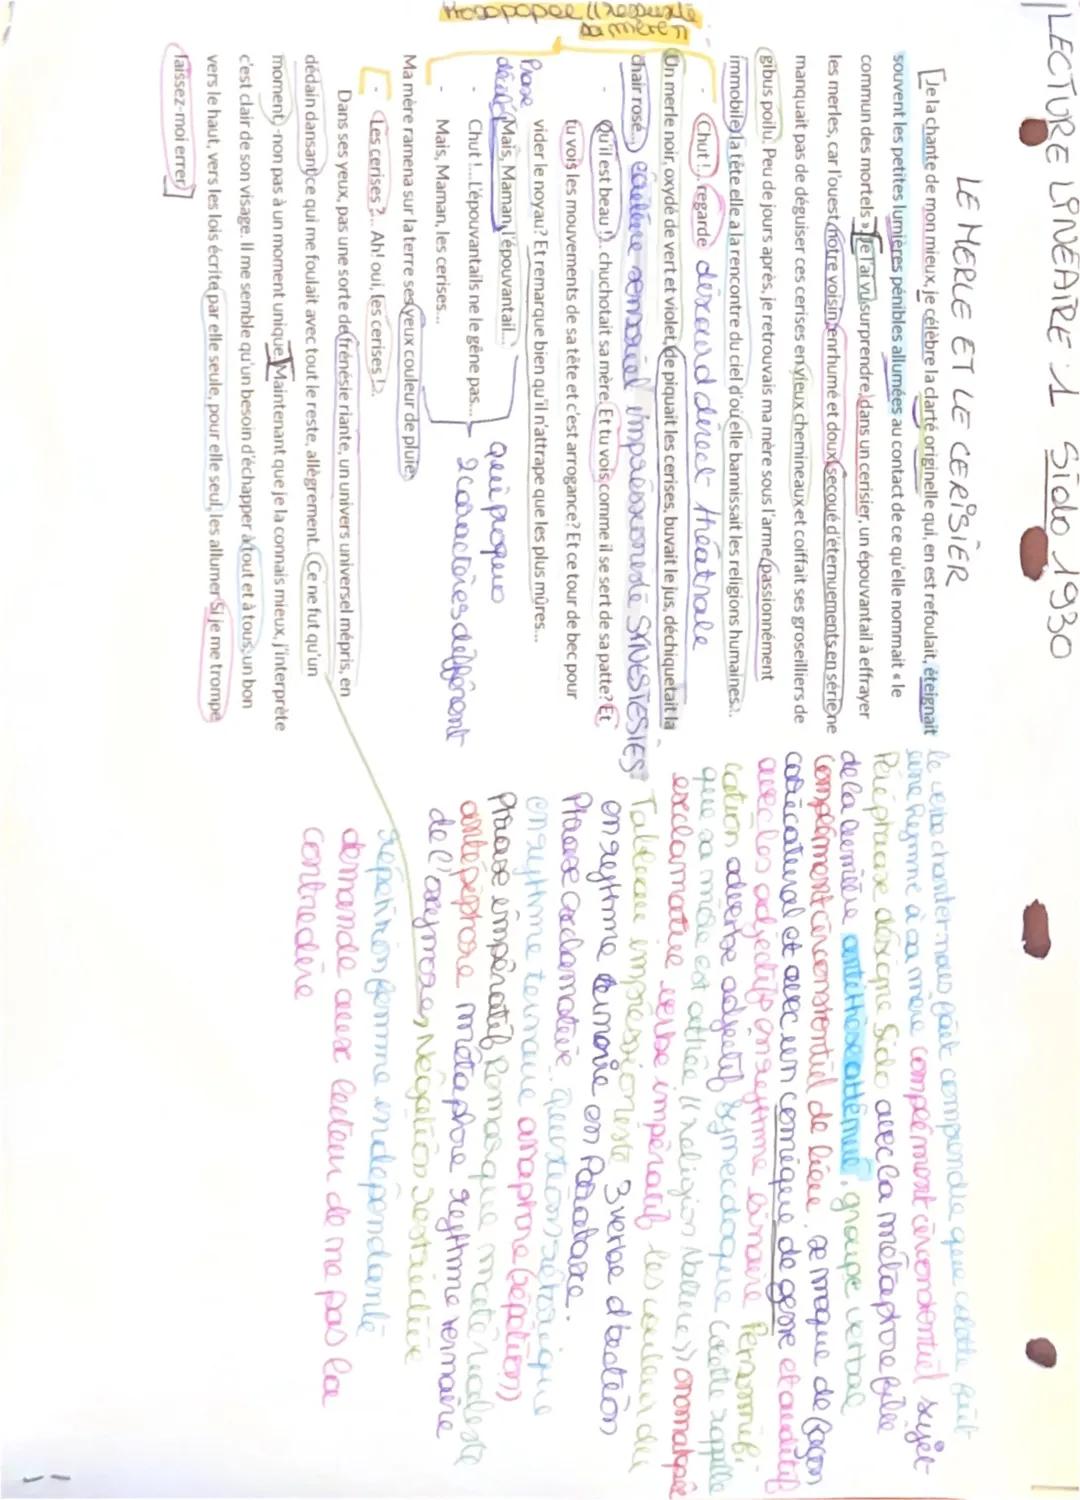 LECTURE LINÉAIRE 1 Sido 1930
LE MERLE ET LE CERISIER
[Je la chante de mon mieux, je célèbre la clarté originelle qui, en est refoulait, éteignait
souvent les petites lumières pénibles allumées au contact de ce qu'elle nommait « le
commun des mortels ». Je l'ai vu surprendre, dans un cerisier, un épouvantail à effrayer
les merles, car l'ouest, notre voisin enrhumé et doux, secoué d'éternuements en série, ne
manquait pas de déguiser ces cerises en vieux chemineaux et coiffait ses groseilliers de
gibus poilu. Peu de jours après, je retrouvais ma mère sous l'arme, passionnément
immobile, la tête elle a la rencontre du ciel d'où elle bannissait les religions humaines...
Prosopopée
sa mère "
- Chut !.. regarde discours direct théatrale
Un merle noir, oxydé de vert et violet, de piquait les cerises, buvait le jus, déchiquetait la
chair rosé... SYNESTESIES
- Qu'il est beau !.. chuchotait sa mère. Et tu vois comme il se sert de sa patte? Et
tu vois les mouvements de sa tête et c'est arrogance? Et ce tour de bec pour
vider le noyau? Et remarque bien qu'il n'attrape que les plus mûres...
- Mais, Maman, l'épouvantail...
- Chut !... L'épouvantails ne le gêne pas...
- Mais, Maman, les cerises...
quiproquo
2 caractères différent
Ma mère ramena sur la terre ses yeux couleur de pluie
- Les cerises ?... Ah! oui, les cerises !..
Dans ses yeux, pas une sorte de frénésie riante, un univers universel mépris, en
dédain dansant ce qui me foulait avec tout le reste, allègrement. Ce ne fut qu'un
moment, -non pas à un moment unique. Maintenant que je la connais mieux, j'interprète
c'est clair de son visage. Il me semble qu'un besoin d'échapper à tout et à tous, un bon
vers le haut, vers les lois écrite par elle seule, pour elle seul, les allumer. Si je me trompe
laissez-moi errer]
le verbe chanter nous fait comprendre que colette fait
une hymne à sa mère complément sujet
Périphrase désigne Sido avec la métaphore filée
de la lumière antithèse atténué, groupe verbal
complément circonstentiel de lieu, se moque de façon
caricatural et avec un comique de geste et auditif
avec les adjectifs en rythme binaire Personnifi-
cation adverbe adjectif Synecdoque colette rappelle
que sa mère est athée
exclamative verbe impératif les couleur du
Tableau impressioniste 3 verbe d'action
en rythme en Parataxe.
Phrase exclamative
en rythme ternaire anaphore (répétition)
Phrase impératif
métaphore rythme
de l'oxymore, Négation restrictive
répétition femme indépendante
demande aux lecteur de ne pas la
contredire